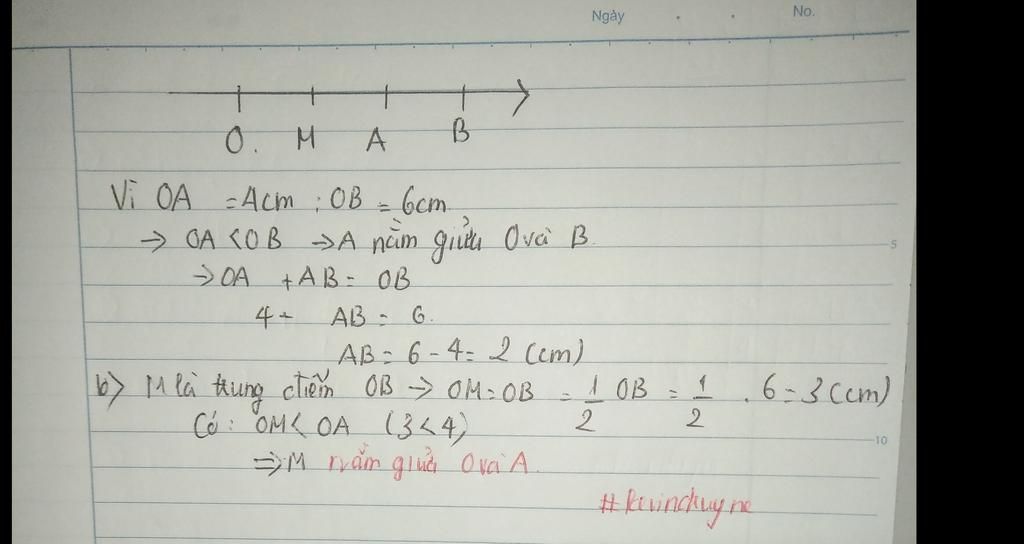 Ngày . . No.
O. M A B
Vì OA = 4cm ; OB = 6cm.
→ OA < OB → A nằm giửa O và B.
→ OA + AB = OB
4 + AB = 6.
AB = 6 - 4 = 2 (cm)
5
b) M là trung điểm OB → OM = OB = 1/2 OB = 1/2 . 6 = 3 (cm)
Có : OM < OA (3 < 4)
10
⇒ M nằm giửa O và A.